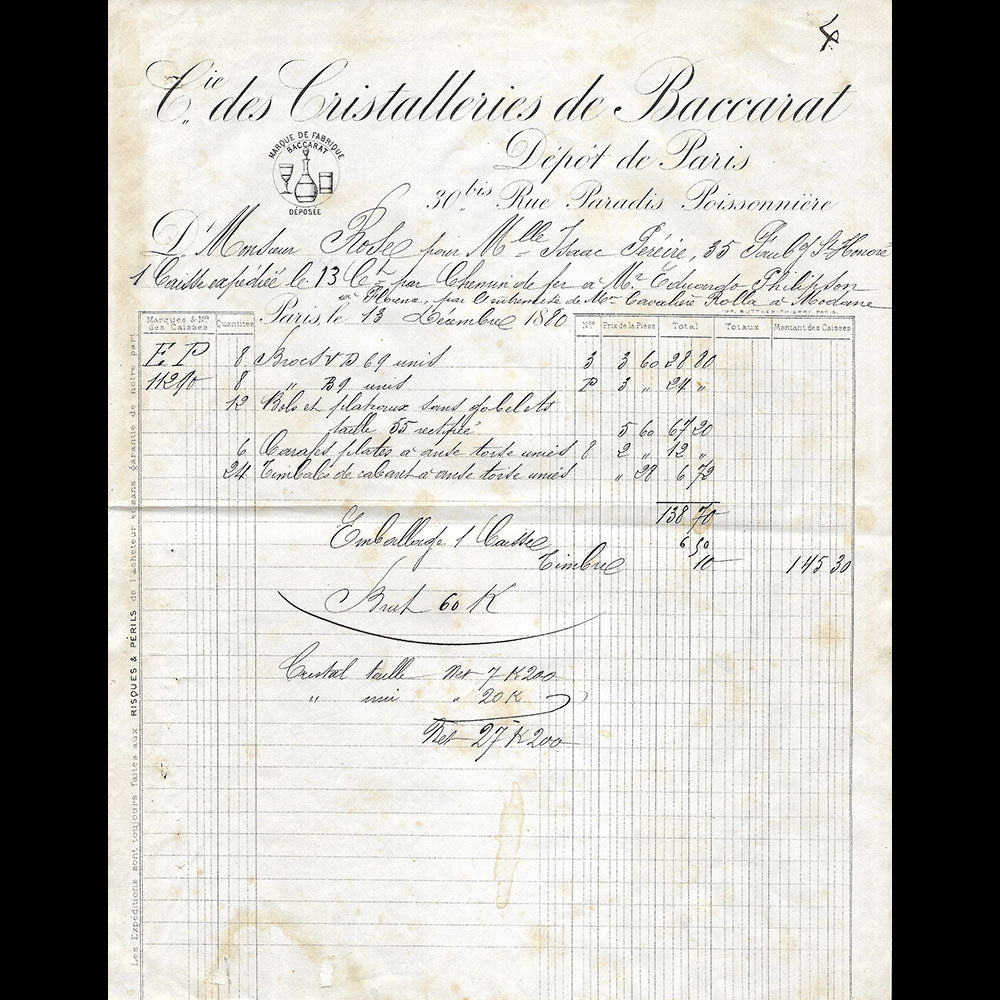 4
Cie des Cristalleries de Baccarat
MARQUE DE FABRIQUE
BACCARAT
DÉPOSÉE
Dépôt de Paris
30 bis Rue Paradis Poissonnière
D. Monsieur Rose pour Mlle Isaac Pereire, 35 Faubg St Honoré
1 Caisse expédiée le 13 Ct par Chemin de fer à Mr Eduardo Philipson
à par l'entremise de Mr Cavaliere Rolla à Modane
IMP. BUTTNER-THIERRY, PARIS.
Paris, le 13 Décembre 1880
Marques & Nos des Caisses Quantités Nos Prix de la Pièce Total Totaux Montant des Caisses
E P 8 Brocs V D 69 unis 3 3 60 28 80
11290 8 " B9 unis P 3 " 24 "
12 Bols et plateaux sans gobelets
taille 55 rectifié 5 60 67 20
6 Carafes plates à anse torse unies 8 2 " 12 "
24 Timbales de cabaret à anse torse unies " 28 6 72
138 70
Emballage 1 Caisse 6 50
Timbre 10 145 30
Brut 60 K
Cristal taille Net 7 K 200
" uni " 20 K
Net 27 K 200
Les Expéditions sont toujours faites aux RISQUES & PÉRILS de l'acheteur et sans garantie de notre part